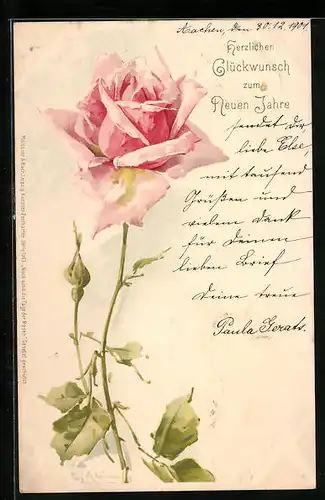 Aachen, den 30.12.1901.
Herzlichen
Glückwunsch
zum
Neuen Jahre
sendet dir
liebe Else,
mit tausend
Grüßen und
vielem Dank
für Deinen
lieben Brief
Deine treue
Paula Gerats.